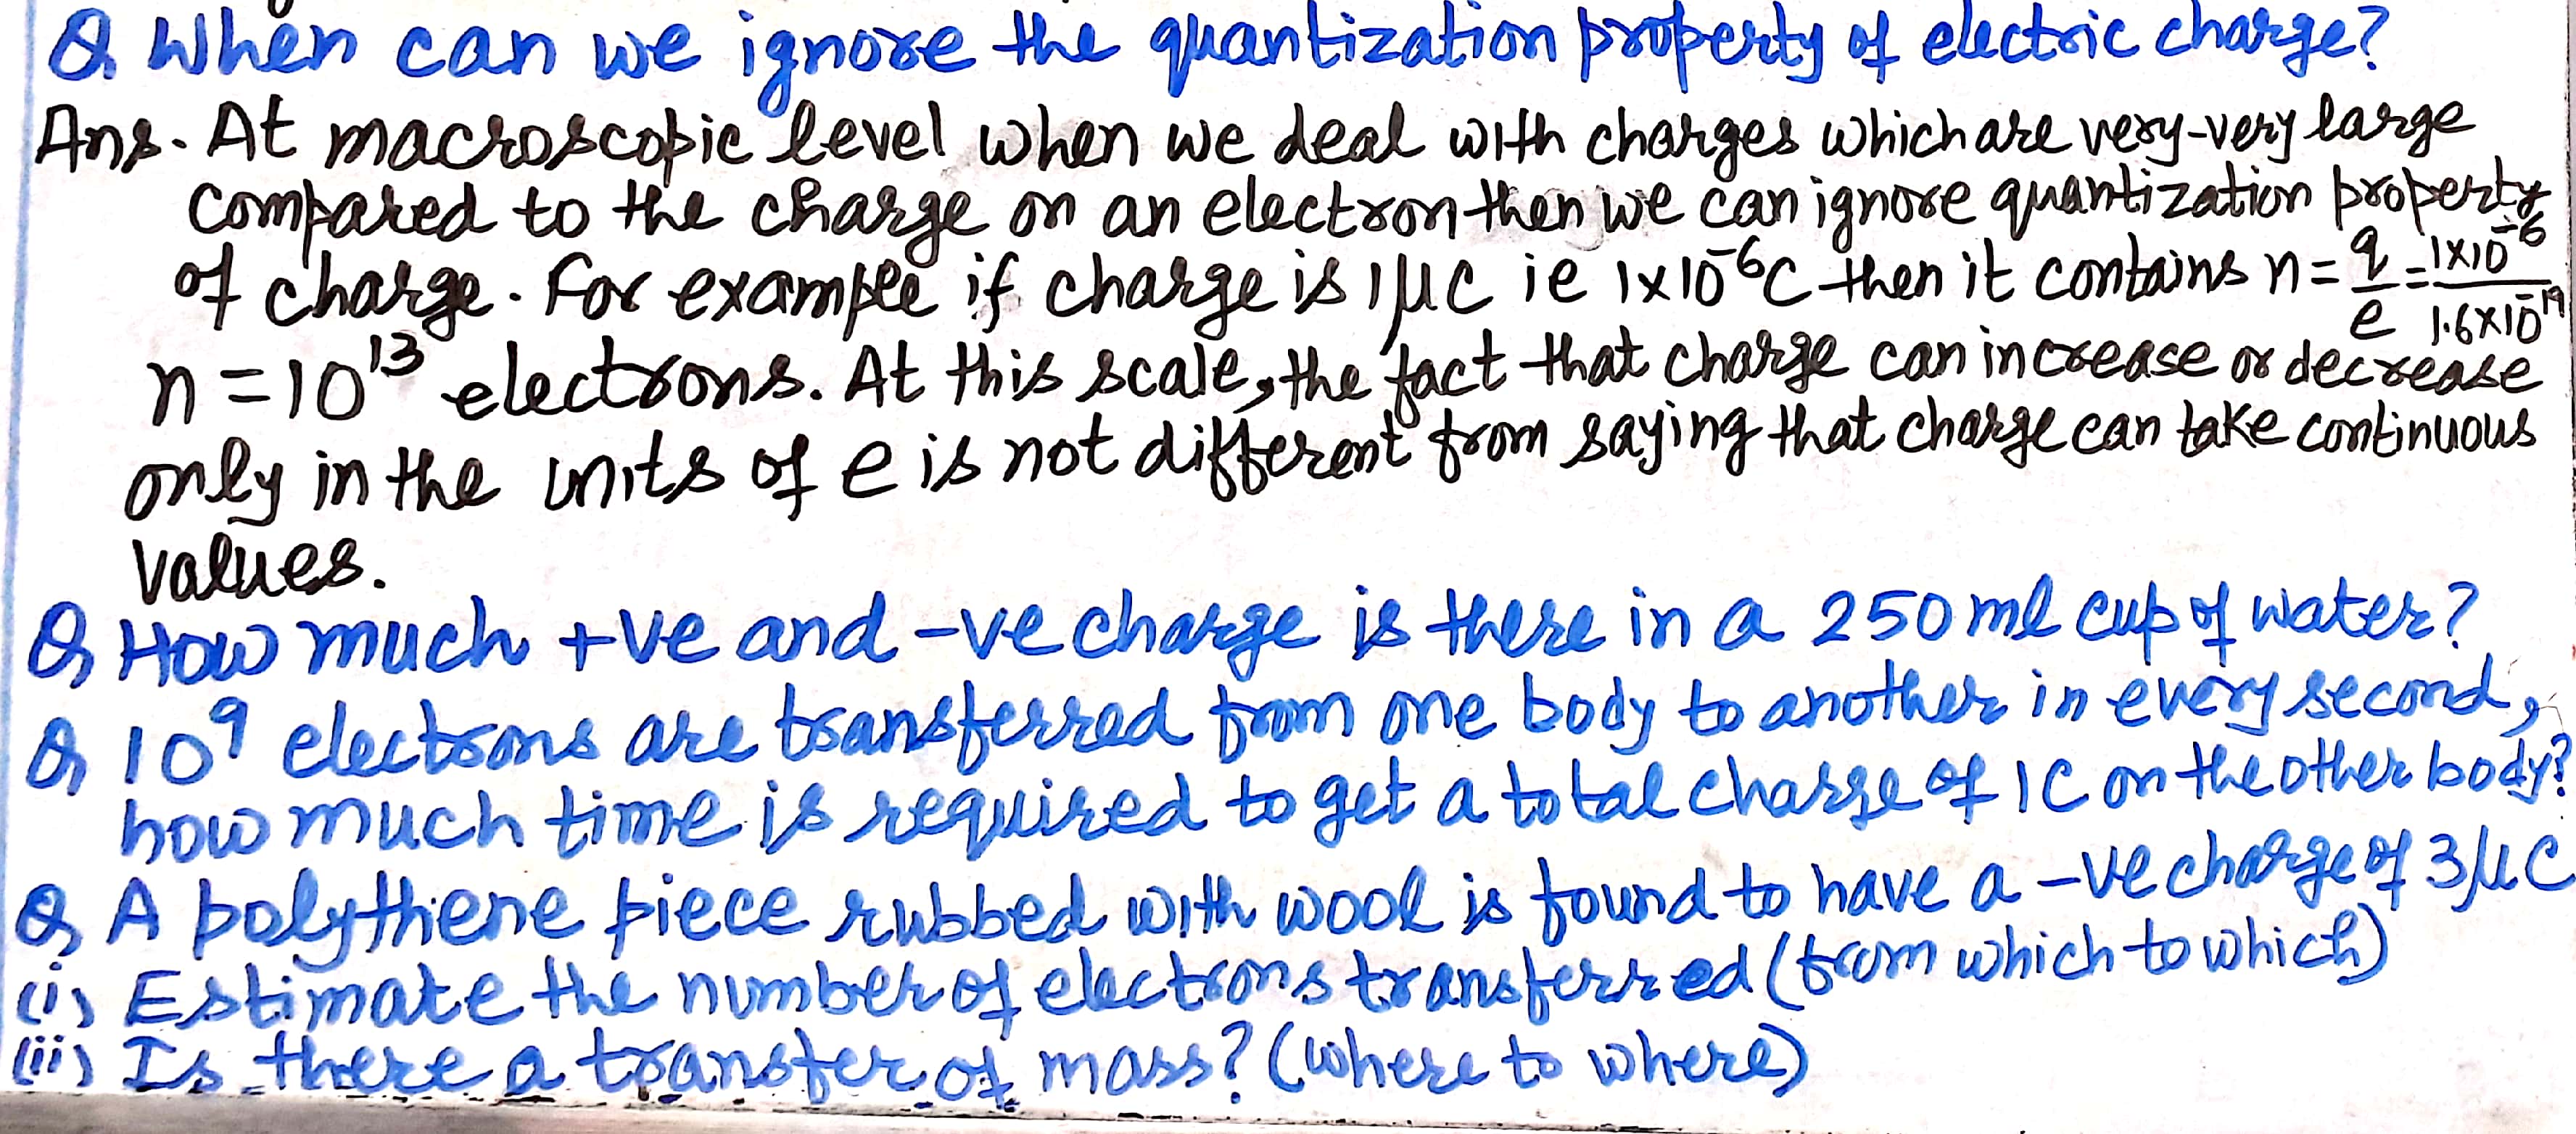 Q. When can we ignore the quantization property of electric charge?
Ans. At macroscopic level when we deal with charges which are very-very large
compared to the charge on an electron then we can ignore quantization property
of charge. For example if charge is 1μC ie 1x10⁻⁶C then it contains n = q/e = 1x10⁻⁶/1.6x10⁻¹⁹
n = 10¹³ electrons. At this scale, the fact that charge can increase or decrease
only in the units of e is not different from saying that charge can take continuous
values.
Q How much +ve and -ve charge is there in a 250 ml cup of water?
Q 10⁹ electrons are transferred from one body to another in every second,
how much time is required to get a total charge of 1C on the other body?
Q A polythene piece rubbed with wool is found to have a -ve charge of 3μC
(i) Estimate the number of electrons transferred (from which to which)
(ii) Is there a transfer of mass? (where to where)